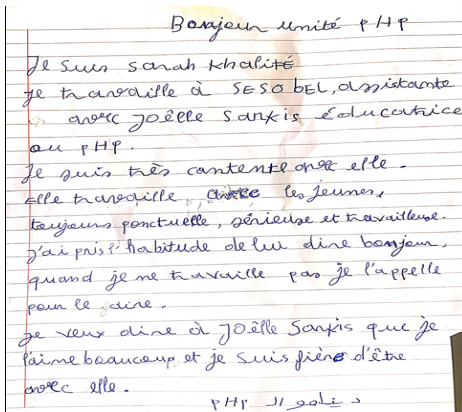 Bonjour unité PHP
Je suis sarah khalifé
je travaille à SESOBEL, assistante
avec Joëlle Sarkis éducatrice
au PHP.
Je suis très contente avec elle.
Elle travaille avec les jeunes,
toujours ponctuelle, sérieuse et travailleuse.
j'ai pris l'habitude de lui dire bonjour,
quand je ne travaille pas je l'appelle
pour le dire.
Je veux dire à Joëlle Sarkis que je
l'aime beaucoup et je suis fière d'être
avec elle.
PHP